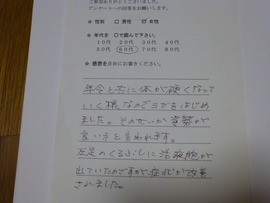 ご参加ありがとうございました。
アンケートへの回答をお願いします。
● 性別 □ 男性 ☑ 女性
● 年代を○で囲んで下さい。
10代 20代 30代 40代
50代 60代 70代 80代
● 感想を自由にお書きください。
年令と共に体が硬くなって
いく様なのでヨガをはじめ
ました。そのせいか姿勢が
良い方と言われます。
左足のくるぶしに滑液胞が
出ていたのですが症状が改善
されました。